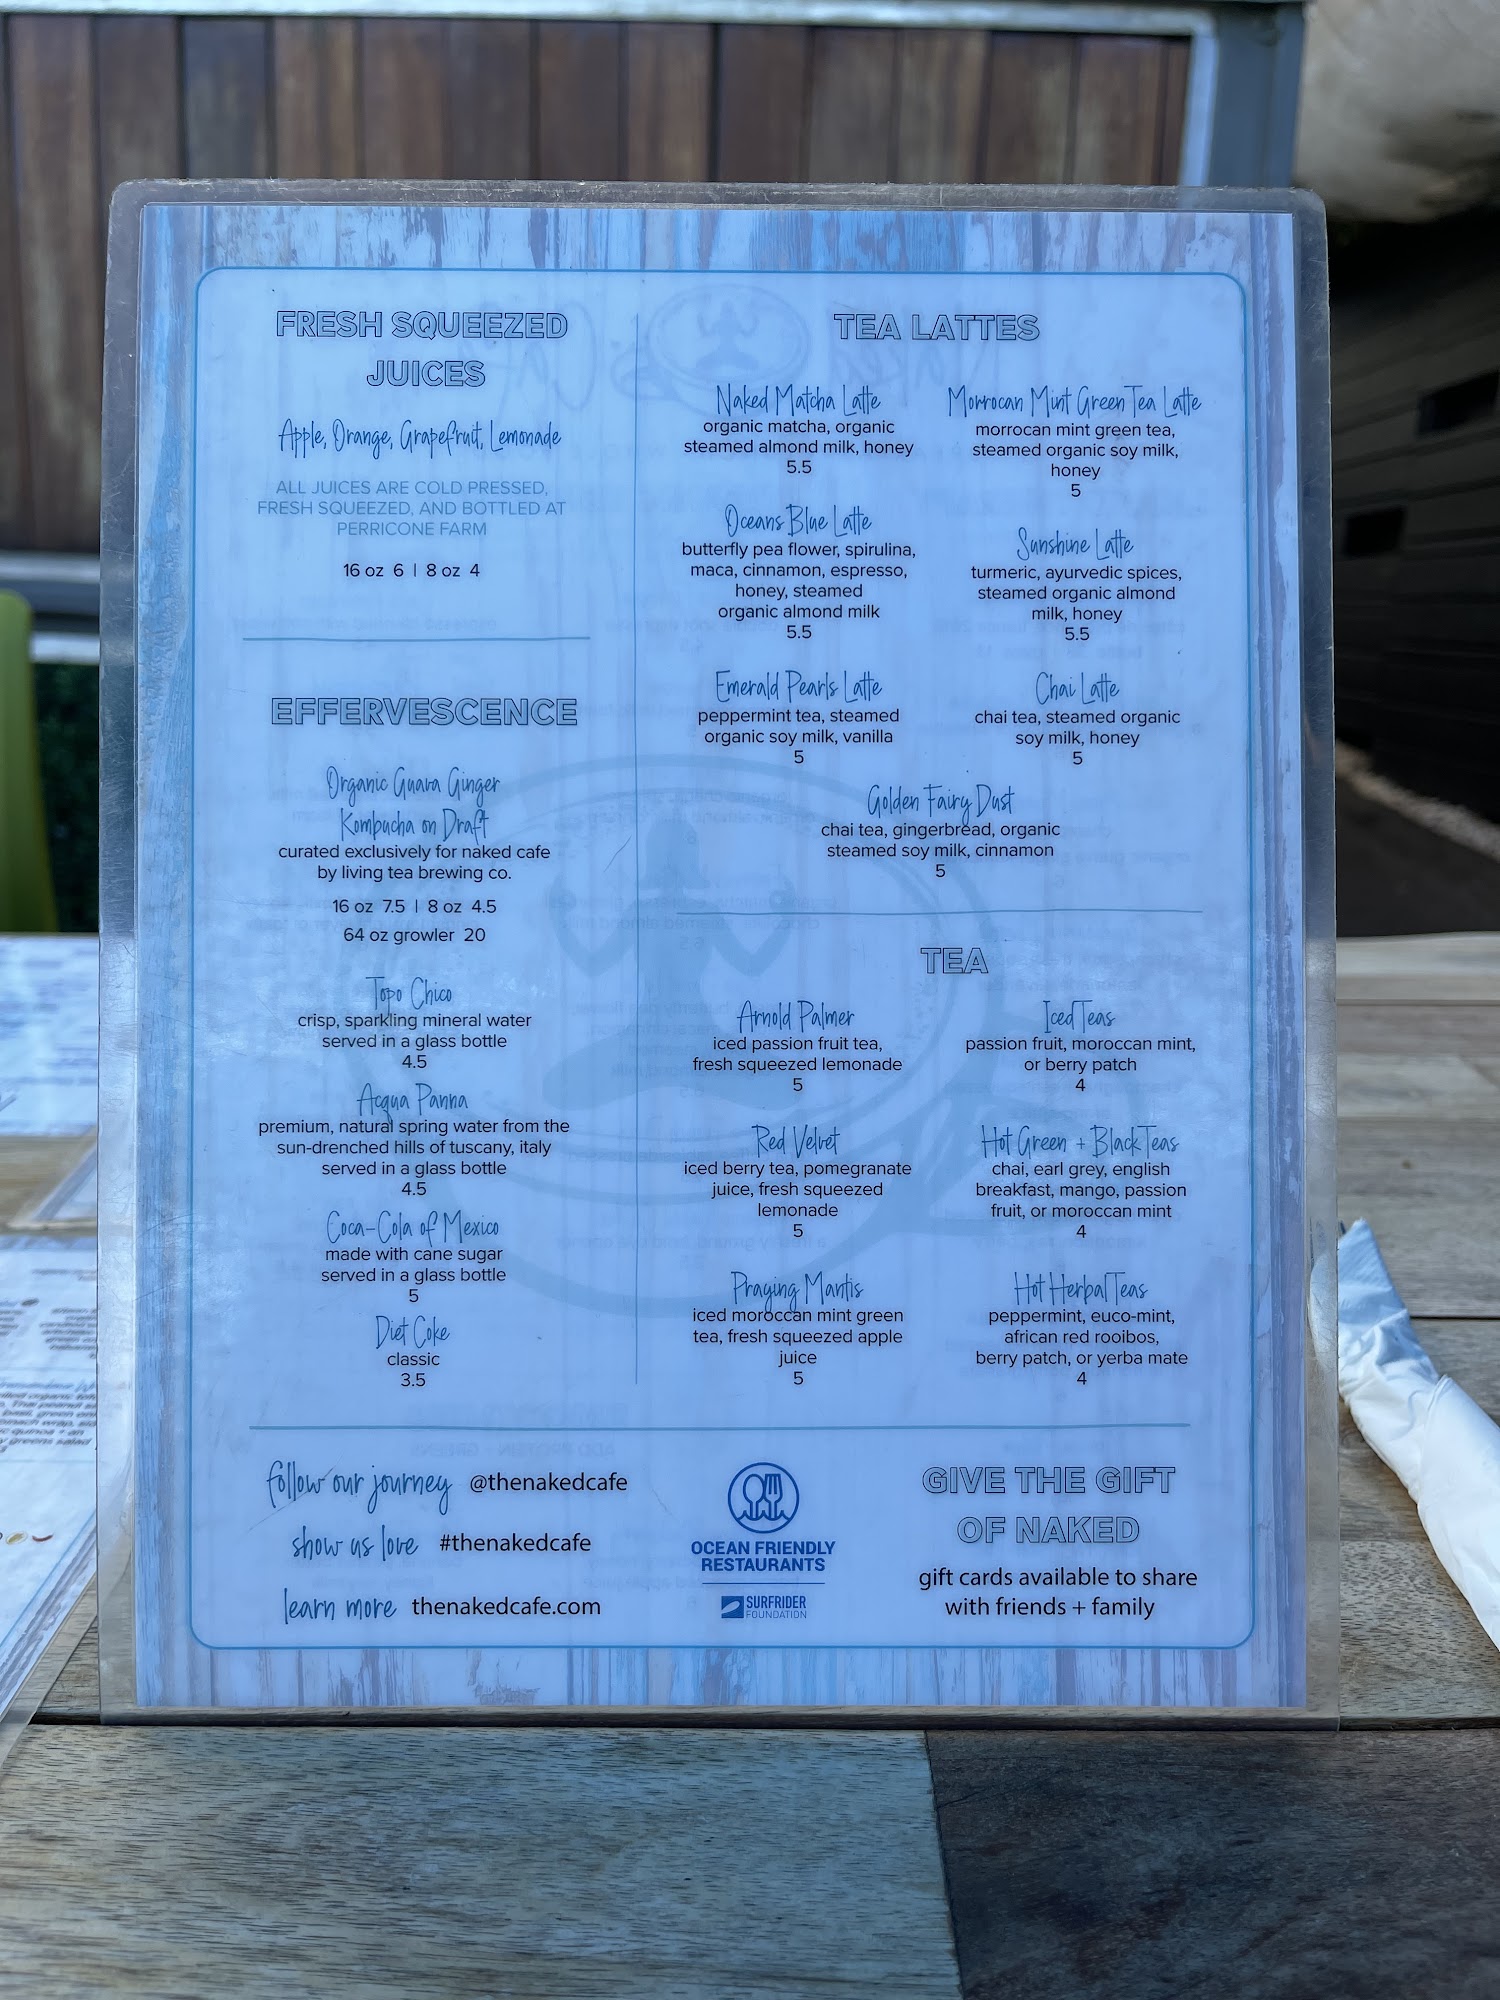 FRESH SQUEEZED
JUICES
Apple, Orange, Grapefruit, Lemonade
ALL JUICES ARE COLD PRESSED,
FRESH SQUEEZED, AND BOTTLED AT
PERRICONE FARM
16 oz 6 | 8 oz 4
EFFERVESCENCE
Organic Guava Ginger
Kombucha on Draft
curated exclusively for naked cafe
by living tea brewing co.
16 oz 7.5 | 8 oz 4.5
64 oz growler 20
Topo Chico
crisp, sparkling mineral water
served in a glass bottle
4.5
Acqua Panna
premium, natural spring water from the
sun-drenched hills of tuscany, italy
served in a glass bottle
4.5
Coca-Cola of Mexico
made with cane sugar
served in a glass bottle
5
Diet Coke
classic
3.5
TEA LATTES
Naked Matcha Latte
organic matcha, organic
steamed almond milk, honey
5.5
Oceans Blue Latte
butterfly pea flower, spirulina,
maca, cinnamon, espresso,
honey, steamed
organic almond milk
5.5
Emerald Pearls Latte
peppermint tea, steamed
organic soy milk, vanilla
5
Morrocan Mint Green Tea Latte
morrocan mint green tea,
steamed organic soy milk,
honey
5
Sunshine Latte
turmeric, ayurvedic spices,
steamed organic almond
milk, honey
5.5
Chai Latte
chai tea, steamed organic
soy milk, honey
5
Golden Fairy Dust
chai tea, gingerbread, organic
steamed soy milk, cinnamon
5
TEA
Arnold Palmer
iced passion fruit tea,
fresh squeezed lemonade
5
Red Velvet
iced berry tea, pomegranate
juice, fresh squeezed
lemonade
5
Praying Mantis
iced moroccan mint green
tea, fresh squeezed apple
juice
5
Iced Teas
passion fruit, moroccan mint,
or berry patch
4
Hot Green + Black Teas
chai, earl grey, english
breakfast, mango, passion
fruit, or moroccan mint
4
Hot Herbal Teas
peppermint, euco-mint,
african red rooibos,
berry patch, or yerba mate
4
follow our journey @thenakedcafe
show us love #thenakedcafe
learn more thenakedcafe.com
OCEAN FRIENDLY
RESTAURANTS
SURFRIDER
FOUNDATION
GIVE THE GIFT
OF NAKED
gift cards available to share
with friends + family